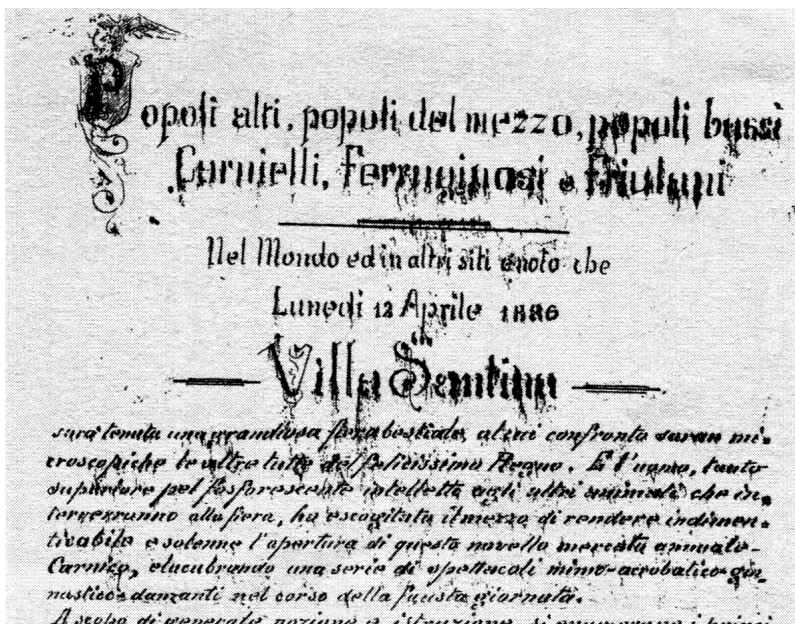 Popoli alti, popoli del mezzo, popoli bassi
Carnielli, Ferruginosi e Friulani
Nel Mondo ed in altri siti è noto che
Lunedì 12 Aprile 1886
in
Villa Santina
sarà tenuta una grandiosa fiera bestiale, al cui confronto saran mi-
croscopiche le altre tutte del felicissimo Regno. E l'uomo, tanto
superiore pel fosforescente intelletto agli altri animali che in-
terverranno alla fiera, ha escogitato il mezzo di rendere indimen-
ticabile e solenne l'apertura di questo novello mercato annuale
Carnico, elucubrando una serie di spettacoli mimo-acrobatico-gin-
nastico-danzanti nel corso della fausta giornata.
A scopo di generale nozione e istruzione, si enumerano i princi